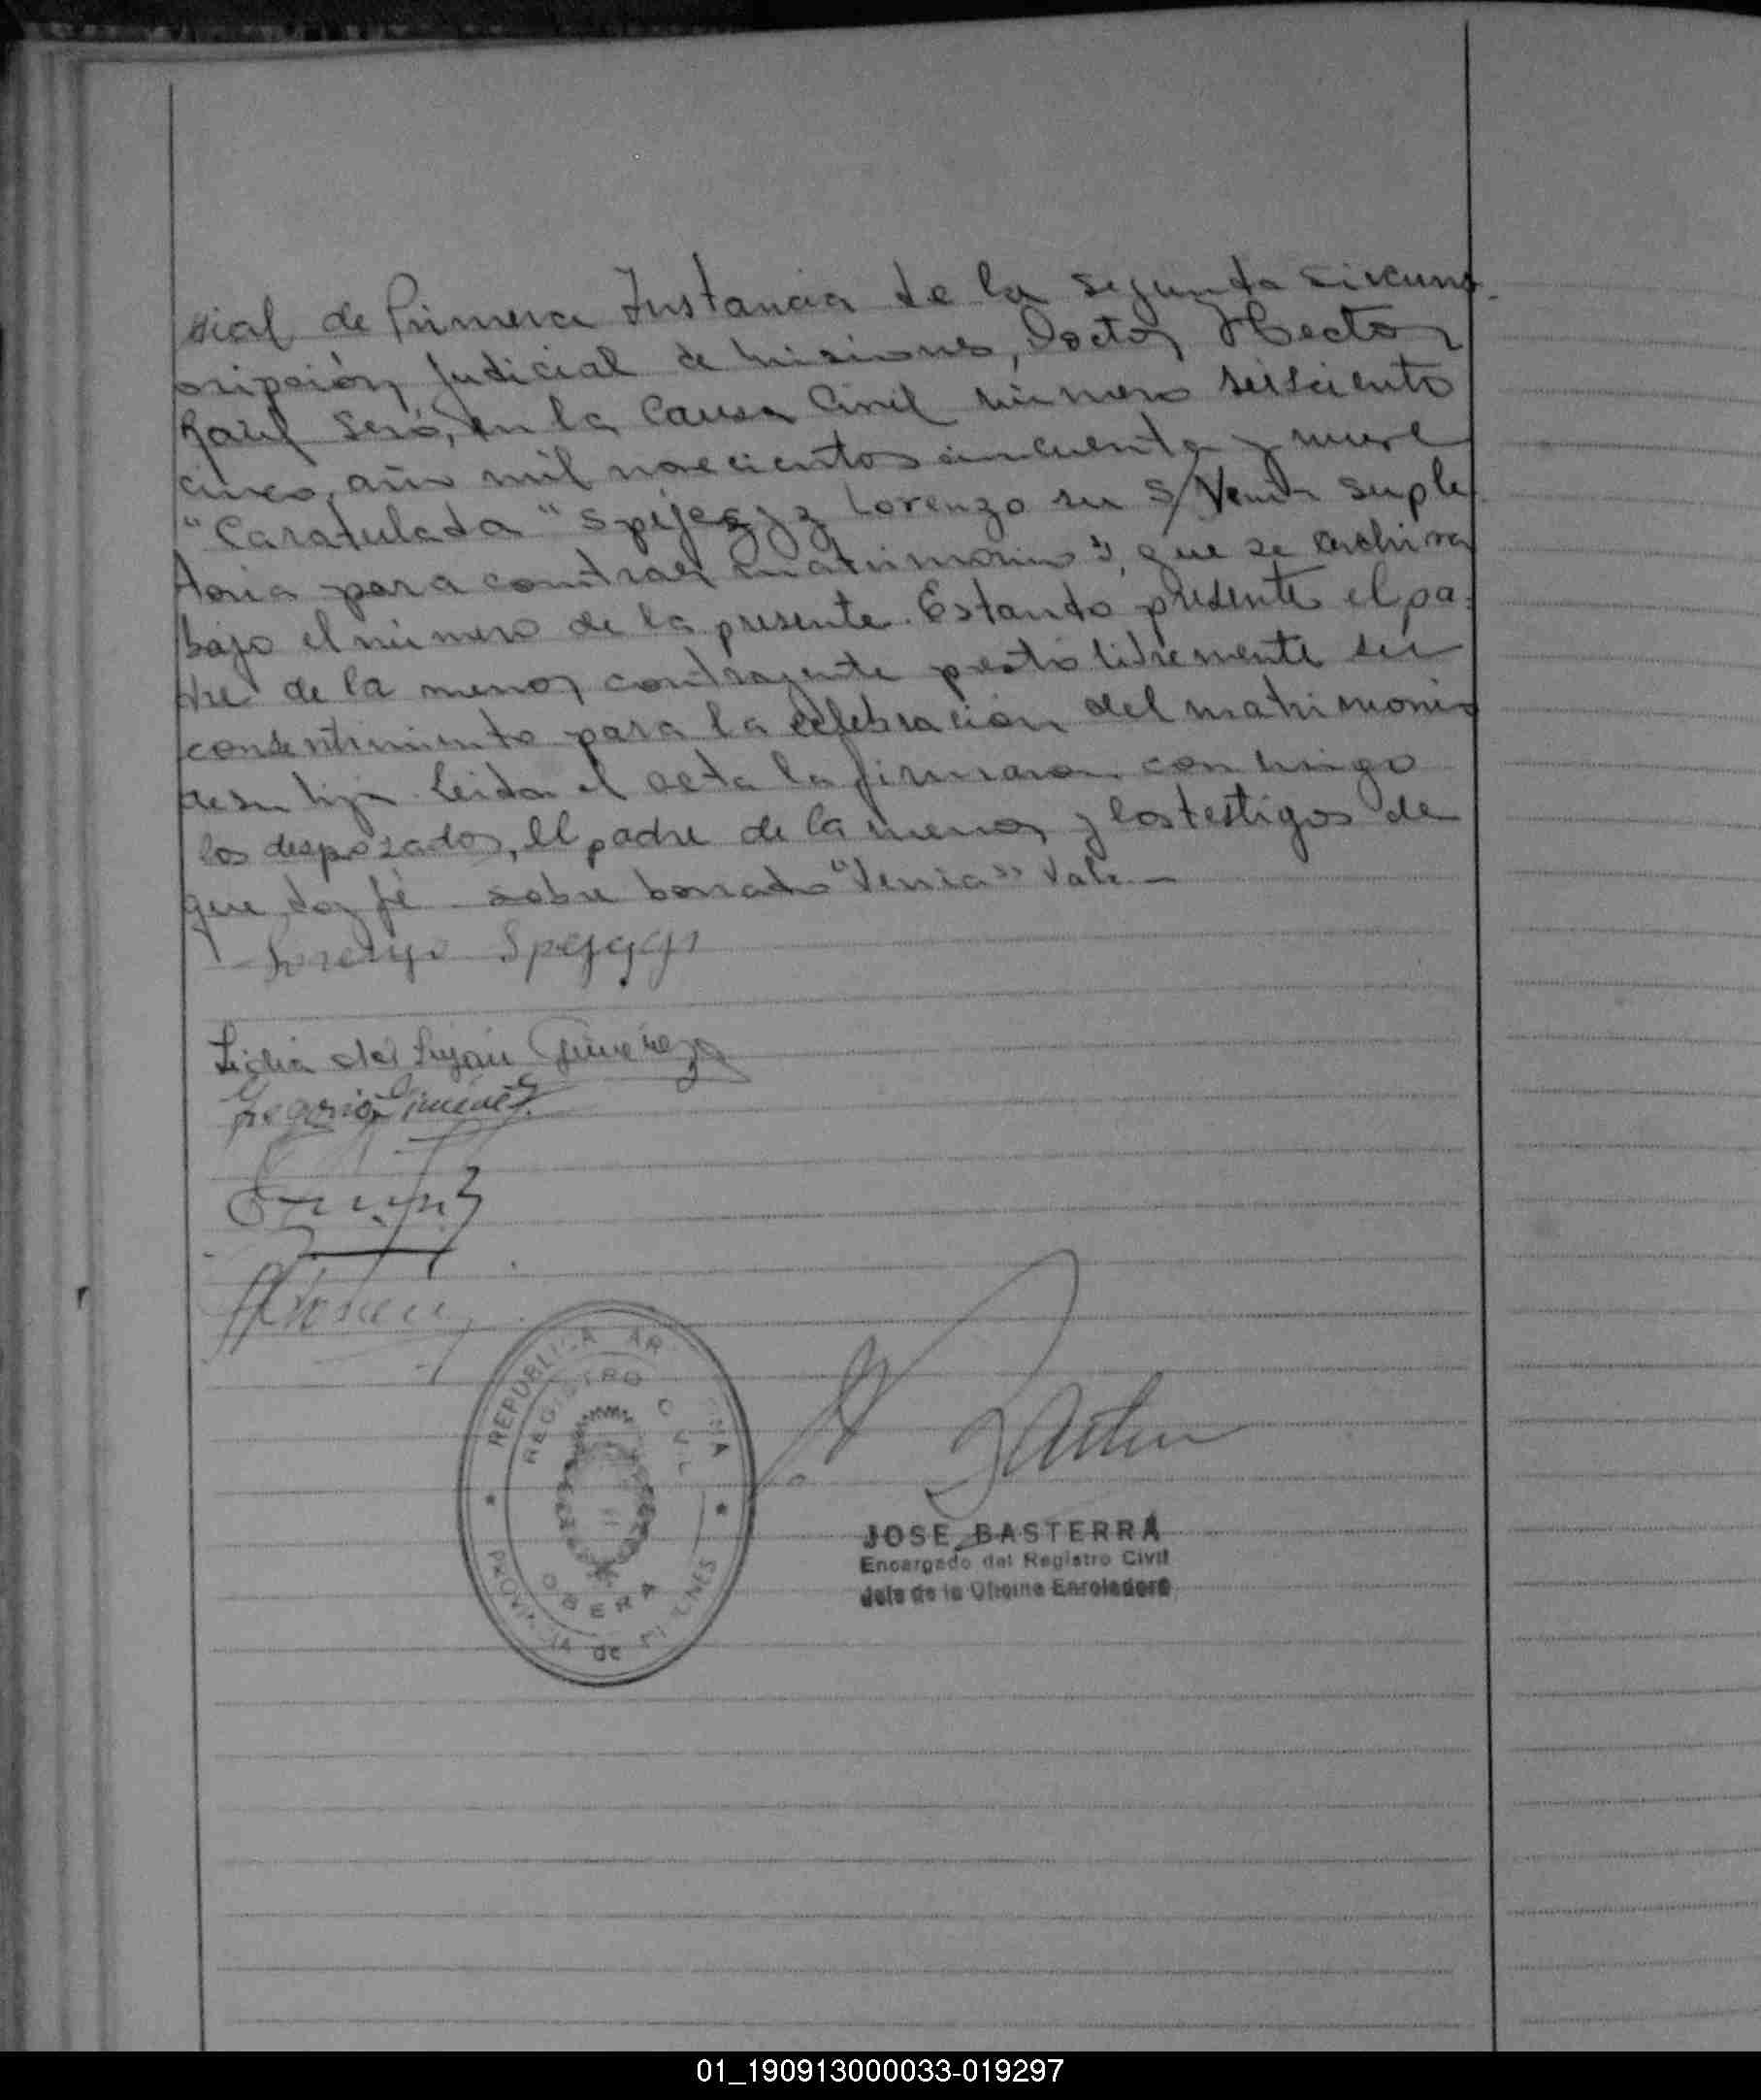 cial de Primera Instancia de la segunda circuns-
cripción Judicial de Misiones, Doctor Hector
Raul Seró, en la Causa Civil número seiscientos
cinco, año mil novecientos cincuenta y nueve
"Caratulada "Spejegyz Lorenzo su S/Venia suple
toria para contraer matrimonio", que se archiva
bajo el número de la presente. Estando presente el pa-
dre de la menor contrayente prestó libremente su
consentimiento para la celebración del matrimonio
de su hija. Leida el acta la firmaron conmigo
los desposados, el padre de la menor y los testigos de
que doy fé. sobre borrado "Venia" Vale.—
Lorenzo
Lidia del Luján Gimenez
Gregorio Gimenez
REPUBLICA ARGENTINA
REGISTRO CIVIL
OBERA
PROVINCIA de MISIONES
JOSE BASTERRA
Encargado del Registro Civil
Jefe de la Oficina Enroladora
01_190913000033-019297